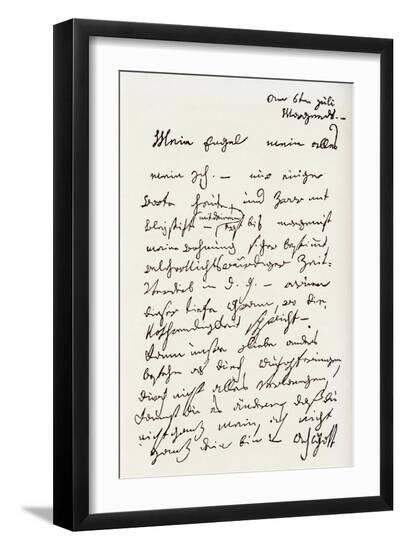 am 6ten Juli
Morgends. –
Mein Engel mein alles
mein Ich. – nur einige
Worte heute, und zwar mit
Bleystift – (mit deinem) erst bis morgen ist
meine Wohnung sicher bestimmt,
welcher Nichtswürdiger Zeit-
verderb in d. g. – warum
dieser tiefe Gram, wo die
Nothwendigkeit spricht –
Kann unsre Liebe anders
bestehn als durch Aufopferungen,
durch nicht alles verlangen,
kannst du es ändern, daß du
nicht ganz mein, ich nicht
ganz dein bin – Ach Gott